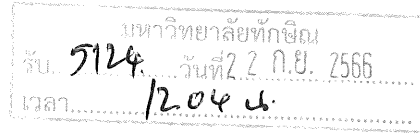 มหาวิทยาลัยทักษิณ
รับ 5124 วันที่ 22 ก.ย. 2566
เวลา 1204 น.